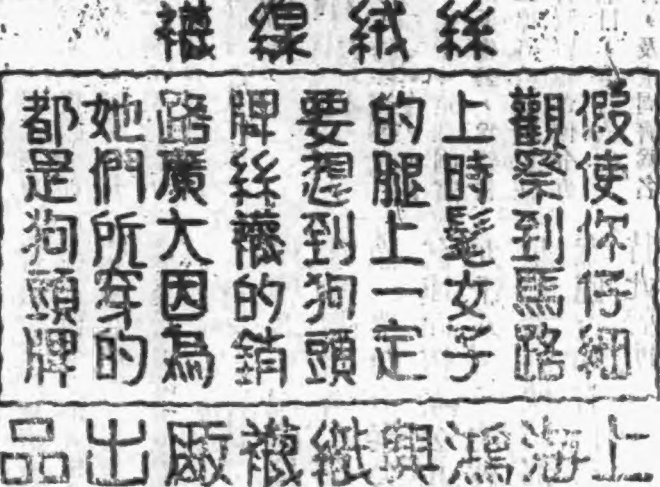 絲絨線襪
假使你仔細
觀察到馬路
上時髦女子
的腿上一定
要想到狗頭
牌絲襪的銷
路廣大因為
她們所穿的
都是狗頭牌
上海鴻興織襪廠出品